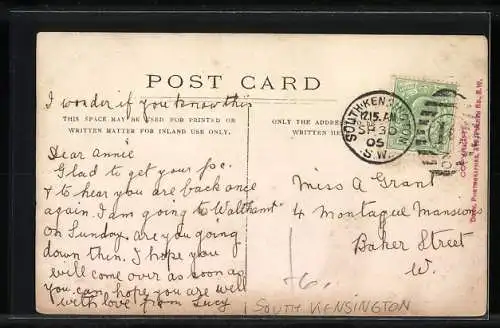 POST CARD
I wonder if you know this
THIS SPACE MAY BE USED FOR PRINTED OR
WRITTEN MATTER FOR INLAND USE ONLY.
Dear Annie
Glad to get your p.c.
& to hear you are back
again. I am going to Walthamt
on Sunday. are you going
down then. I hope you
will come over as soon as
you can, hope you are well
with love from Lucy
ONLY THE ADDRESS
WRITTEN HE
SOUTH KEN
12.15. AM
SP 30
05
S.W.
Miss A Grant
4 Montague Mansions
Baker Street
W.
SOUTH KENSINGTON